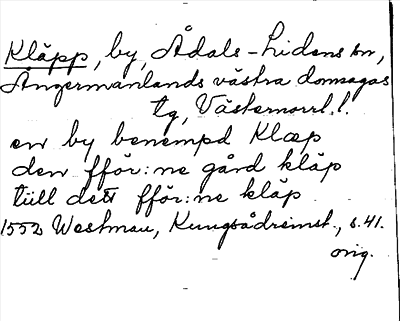 Kläpp, by, Ådals-Lidens sn,
Ångermanlands västra domsagas
tg, Västernorrl. l.
en by benempd Klæp
den fför:ne gård kläp
tüll dett fför:ne kläp
1552 Westman, Kungsådreinst., s. 41.
orig.